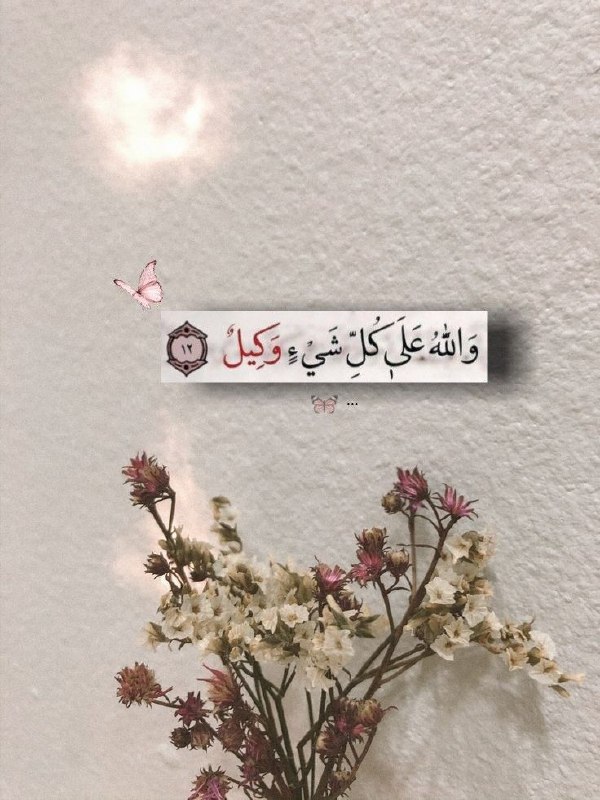 وَاللَّهُ عَلَىٰ كُلِّ شَيْءٍ وَكِيلٌ ١٢
...